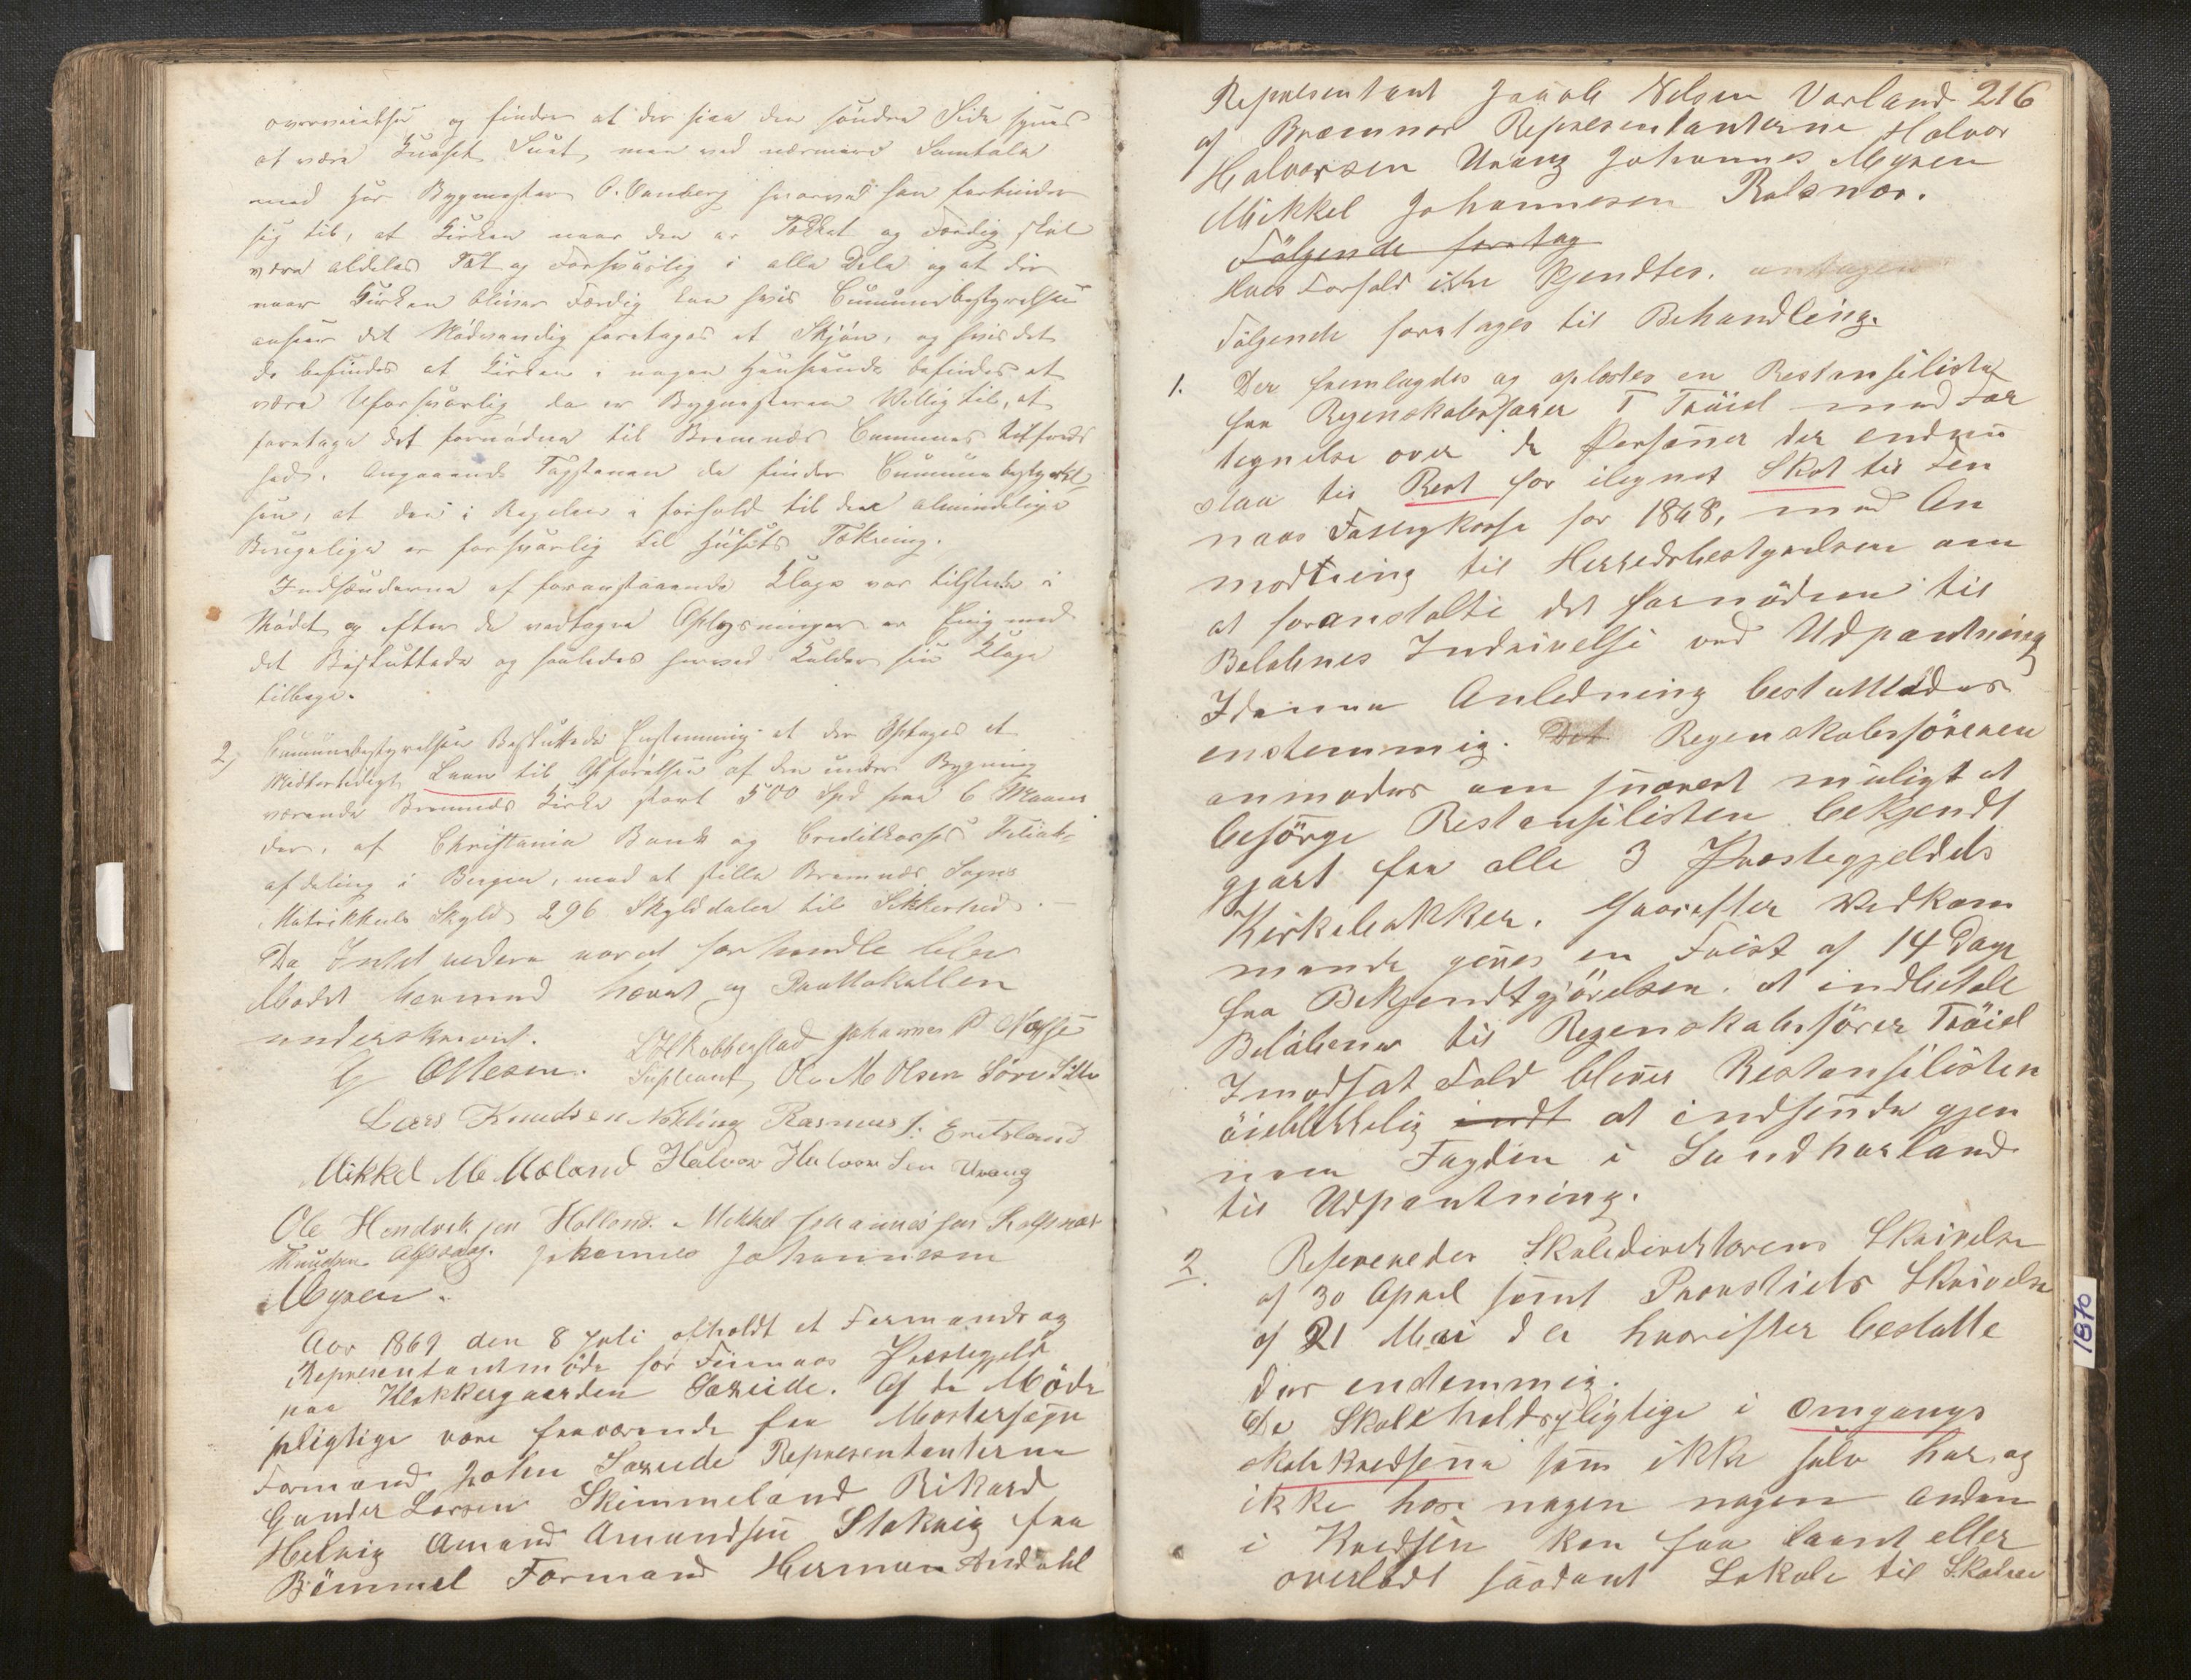 overveielse og finder at der fien den søndre Side synes
at være Huaset Suet, men ved nærmere Samtale
med Hør Bygmester O. Vanberg hvorved han forbinder
sig til, at Kirken naar den er Tækket og Færdig skal
være aldeles Tæt og Forsvarlig i alle Dele og at der
naar Kirken bliver Færdig kan hvis Cumunebestyrelsen
anseer det Nödvendig foretages et Skjön, og hvis det
da befindes at Kirken i nogen Henseende befindes at
være Uforsvarlig da er Bygmesteren Willig til, at
foretage det fornødne til Bremnes Communes tilfreds
hed. Angaaende Tagstenen da finder Cumunebestyrel
sen, at den i Regelen i forhold til den almindelige
Brugelige er forsvarlig til Husets Tækning.
Indsenderne af foranstaaende Klage var tilstede i
Mödet og efter de vedtagne Oplysninger er Enig med
det Besluttede og saaledes herved kalder sin Klage
tilbage.
2) Cumunebestyrelsen Besluttede Enstemmig at der Optages et
Midlertidigt Laan til Opförelsen af den under Bygning
værende Bremnæs Kirke stort 500 Spd paa 6 Maane
der, af Christiania Bank og Creditkasses Filial-
afdeling i Bergen, med at stille Bremnæs Sogns
Matrikkuls Skyld 296 Skylddaler til Sikkerhed. —
Da Intet videre var at forhandle blev
Mødet hermed hævet og Prottokollen
underskrevet.
G Ottesen. LHKobberstad Johannes P Næsse
Supleant, Ole M Olsen Sörε Sille
Lars Knudsen Nökling Rasmus J. Eritsland
Mikkel M Mæland Halvor Halvorsen Urang
Ole Hendriksen Holland. Mikkel Johannessen Rolfsnæs
Knudsen Alfsaag. Johannes Johannesen
Myren.
Aar 1869 den 8 Juli afholdt et Formands og
Representantmöde for Finnaas Præstegjeld
paa Klokkergaarden Særeide. Af de Möde
pligtige vare fraværende fra Mostersogn
Formand John Særeide Representanterne
Gunder Larsen Skimmeland Rikard
Helvig Amund Amundsen Stokvig fra
Bömmel Formand Herman Andahl
216
Representant Jacob Nelsen Vorland
af Bræmnes Representanterne Halvor
Halvorsen Urang Johannes Myren
Mikkel Johannesen Rolsnæs.
Fölgende foretag
Hves Forfald ikke kjendtes. antagen
Fölgende foretages til Behandling.
1. Der fremlagdes og oplæstes en Restanseliste
fra Regenskabsförer T Tröiel med For
tegnelse over de Personer der endnu
staa til Rest for ilignet Skat til Fen
naas Fattigkasse for 1868, med An
modtning til Herredsbestyrelsen om
at foranstalte det fornödne til
Belöbnes Indrivelse ved Udpantning
I denne Anledning besluttedes
enstemmig. Det Regenskabsföreren
anmodes om snarest muligt at
besörge Restanselisten bekjendt
gjort fra alle 3 Præstegjeldets
Kirkebakker. Hvorefter Vedkom
mende gives en Frist af 14 Dage
fra Bekjendtgjörelsen, at indbetale
Belöbene til Regenskabsförer Tröiel
I modsat Fald bliver Restanselisten
öieblikkelig indt at indsende gjen
nem Fogden i Sundhorland
til Udpantning.
2. Refereredes Skoledirektörens Skrivelse
af 30 April samt Provstiets Skrivelse
af 21 Mai d A hvorefter beslutte
des enstemmig.
De Skoleholdspligtige i Omgangs
skolekredsene som ikke selv har og
ikke hos nogen nogen anden
i Kredsen kan faa laant eller
overladt saadant Lokale til Skolen
1870